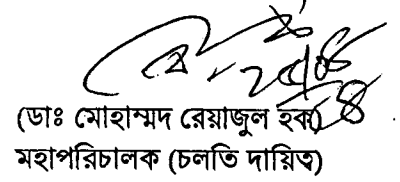 (ডাঃ মোহাম্মদ রেয়াজুল হক)
মহাপরিচালক (চলতি দায়িত্ব)